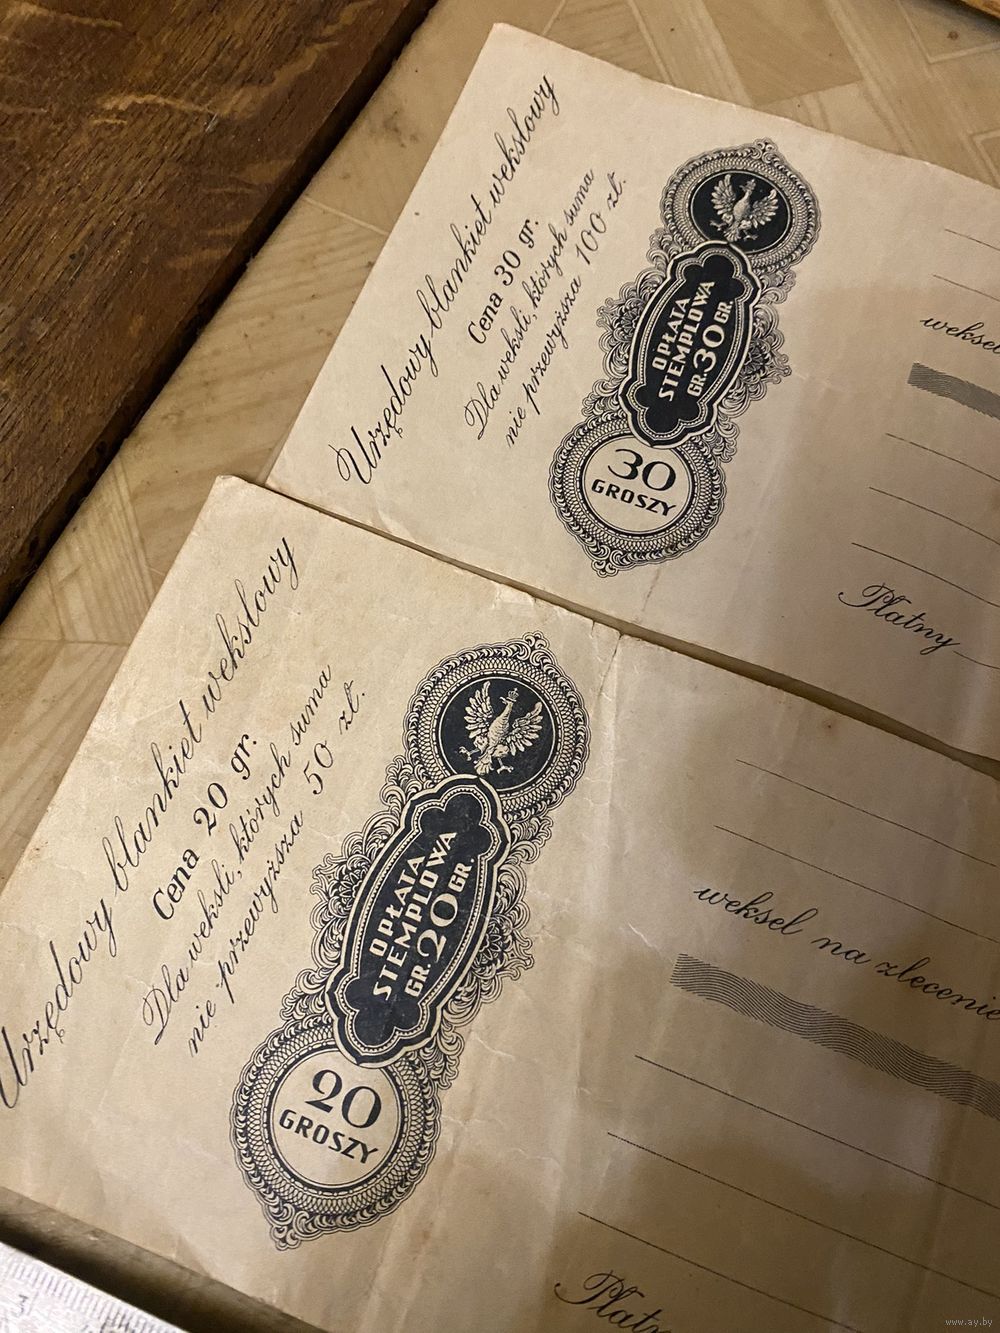 Urzędowy blankiet wekslowy
Cena 30 gr.
Dla weksli, których suma
nie przewyższa 100 zł.
OPŁATA
STEMPLOWA
GR. 30 GR.
30
GROSZY
weksel
Płatny
Urzędowy blankiet wekslowy
Cena 20 gr.
Dla weksli, których suma
nie przewyższa 50 zł.
OPŁATA
STEMPLOWA
GR. 20 GR.
20
GROSZY
weksel na zlecenie
Płatny
www.ay.by